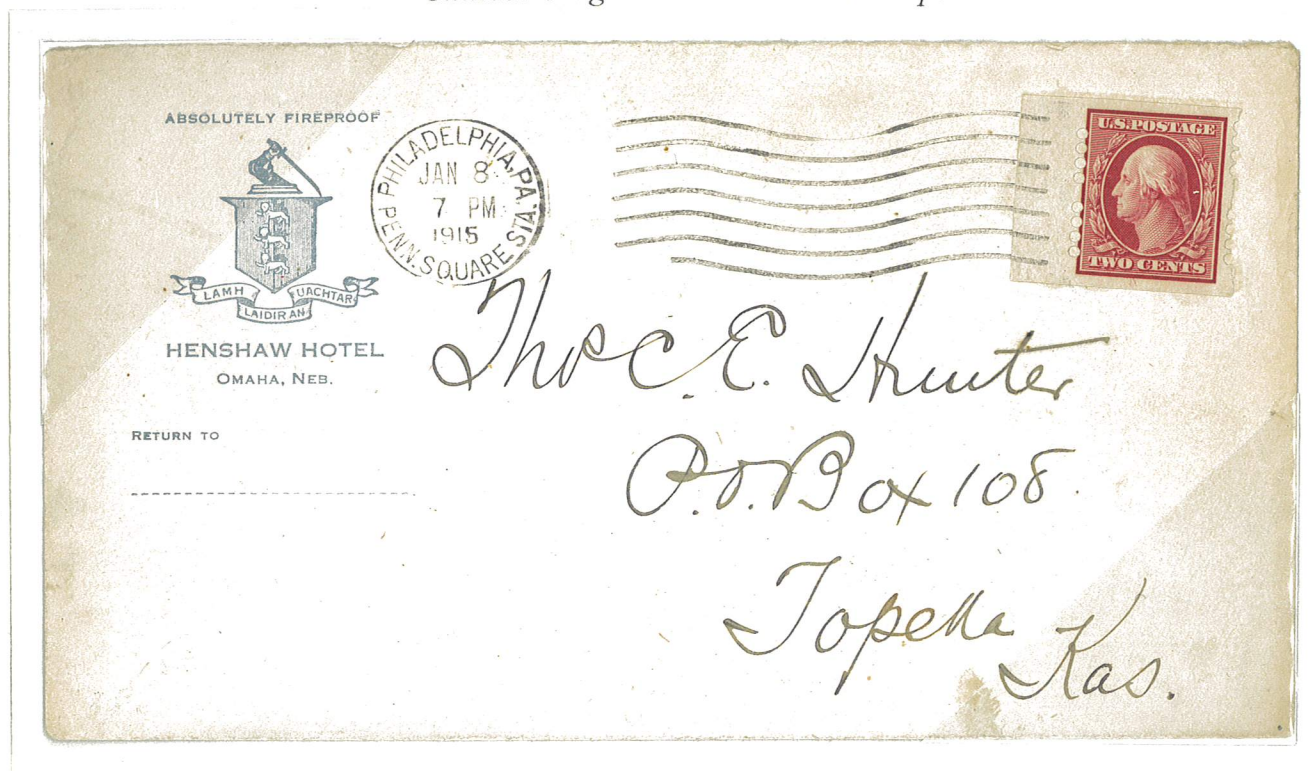 ABSOLUTELY FIREPROOF
LAMH LAIDIR AN UACHTAR
HENSHAW HOTEL
OMAHA, NEB.
RETURN TO
PHILADELPHIA, PA.
JAN 8
7 PM
1915
PENN. SQUARE STA.
U.S. POSTAGE
TWO CENTS
Thos C. E. Hunter
P.O. Box 108
Topeka
Kas.